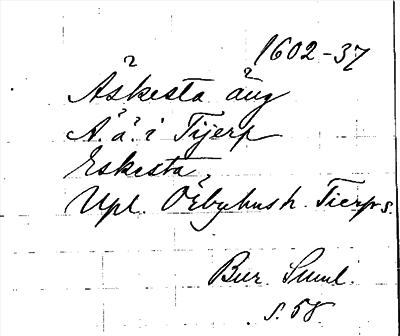 1602-37
Äskesta äng
Ä. ä. i Tijerp
Eskesta
Upl. Örbyhus h. Tierps s.
Bur. Suml.
s. 58.